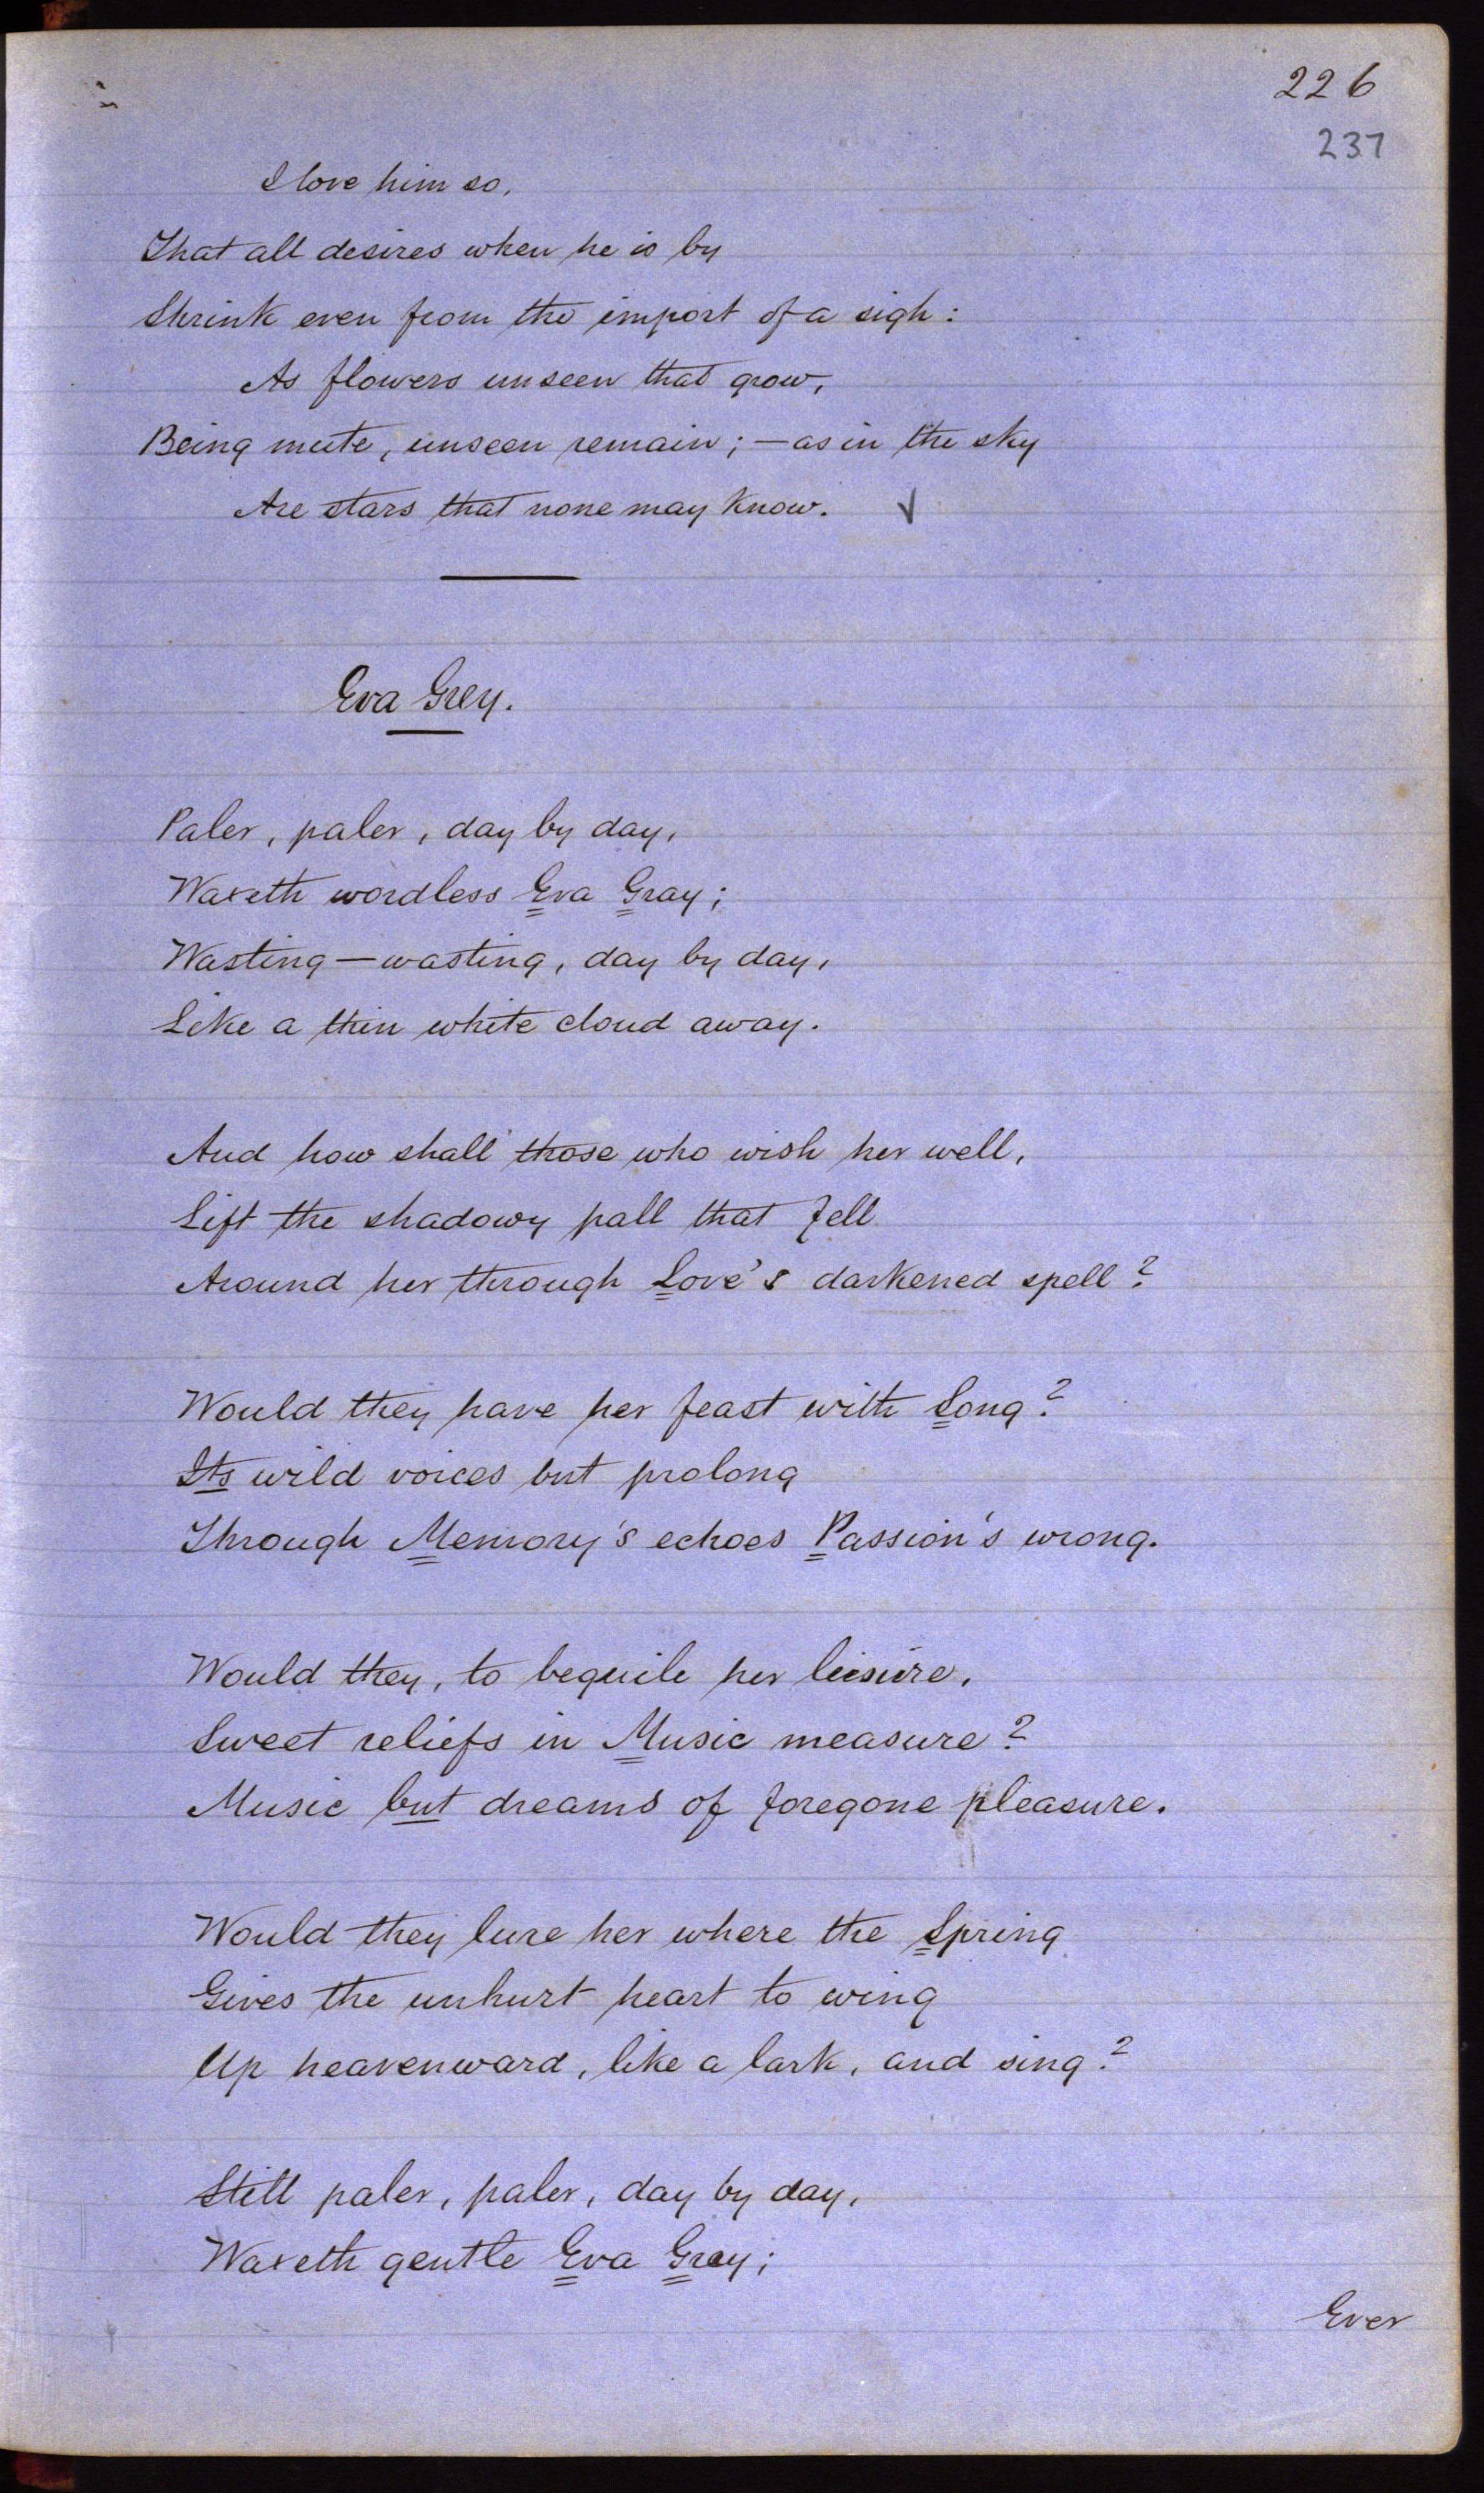 226
237
I love him so,
That all desires when he is by
Shrink even from the import of a sigh:
As flowers unseen that grow,
Being mute, unseen remain; — as in the sky
Are stars that none may know. ✓
Eva Grey.
Paler, paler, day by day,
Waxeth wordless Eva Gray;
Wasting — wasting, day by day,
Like a thin white cloud away.
And how shall those who wish her well,
Lift the shadowy pall that fell
Around her through Love's darkened spell?
Would they have her feast with Song?
Its wild voices but prolong
Through Memory's echoes Passion's wrong.
Would they, to beguile her leisure,
Sweet reliefs in Music measure?
Music but dreams of foregone pleasure.
Would they lure her where the Spring
Gives the unhurt heart to wing
Up heavenward, like a lark, and sing?
Still paler, paler, day by day,
Waxeth gentle Eva Gray;
Ever